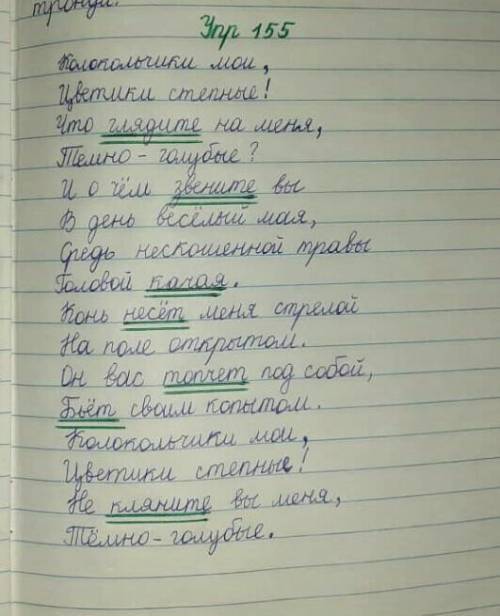 тронул.
Упр 155
Колокольчики мои,
Цветики степные!
Что глядите на меня,
Темно-голубые?
И о чём звените вы
В день весёлый мая,
Средь нескошенной травы
Головой качая.
Конь несёт меня стрелой
На поле открытом.
Он вас топчет под собой,
Бьёт своим копытом.
Колокольчики мои,
Цветики степные!
Не кляните вы меня,
Тёмно-голубые.